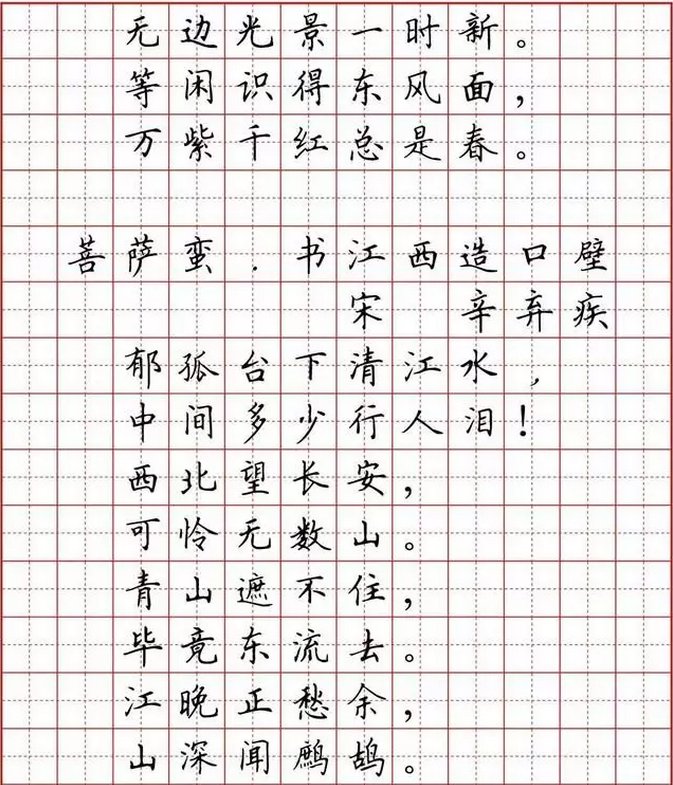 无边光景一时新。
等闲识得东风面,
万紫千红总是春。
菩萨蛮.书江西造口壁
宋 辛弃疾
郁孤台下清江水,
中间多少行人泪!
西北望长安,
可怜无数山。
青山遮不住,
毕竟东流去。
江晚正愁余,
山深闻鹧鸪。